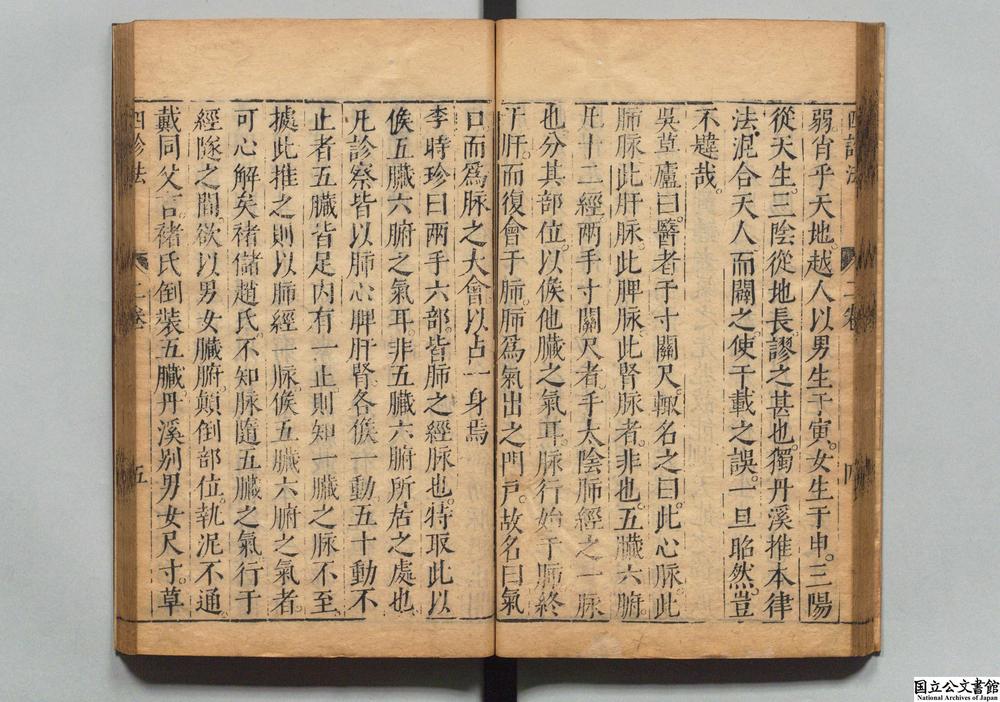 弱肖乎天地。越人以男生于寅。女生于申。三陽
從天生。三陰從地長。謬之甚也。獨丹溪推本律
法。泥合天人而闢之。使千載之誤。一旦昭然。豈
不韙哉。
吳草廬曰。醫者于寸關尺輒名之曰。此心脉。此
肺脉。此肝脉。此脾脉。此腎脉者。非也。五臟六腑
凡十二經。兩手寸關尺者。手太陰肺經之一脉
也。分其部位。以候他臟之氣耳。脉行始于肺。終
于肝。而復會于肺。肺爲氣出之門戶。故名曰氣
口。而爲脉之大會以占一身焉
李時珍曰。兩手六部。皆肺之經脉也。特取此以
候五臟六腑之氣耳。非五臟六腑所居之處也。
凡診察皆以肺心脾肝腎各候一動。五十動不
止者。五臟皆足。内有一止。則知一臟之脉不至。
據此推之。則以肺經一脉。候五臟六腑之氣者。
可心解矣。褚儲趙氏。不知脉隨五臟之氣。行于
經隧之間。欲以男女臟腑。顛倒部位。執泥不通。
戴同父言。褚氏倒裝五臟。丹溪別男女尺寸。草
四診法
二卷
五
国立公文書館
National Archives of Japan